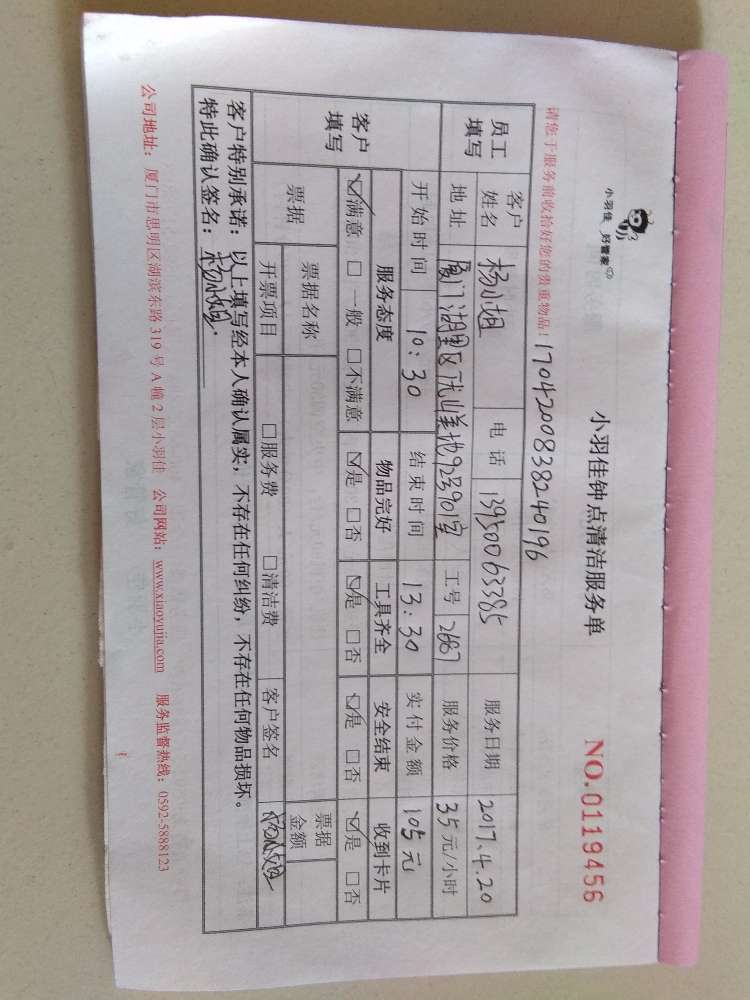 小羽佳 好管家
小羽佳钟点清洁服务单
NO.0119456
请您于服务前收拾好您的贵重物品！
17042008382401​96
员工填写 客户姓名 杨小姐 电话 13950063385 服务日期 2017.4.20
地址 厦门湖里区优山美地923901室 工号 2687 服务价格 35元/小时
开始时间 10:30 结束时间 13:30 实付金额 105元
客户填写 服务态度 物品完好 工具齐全 安全结束 收到卡片
☑满意 □一般 □不满意 ☑是 □否 ☑是 □否 ☑是 □否 ☑是 □否
票据 票据名称 票据金额
开票项目 □服务费 □清洁费 客户签名 杨小姐
客户特别承诺：以上填写经本人确认属实，不存在任何纠纷，不存在任何物品损坏。
特此确认签名：杨小姐.
公司地址：厦门市思明区湖滨东路319号A幢2层小羽佳 公司网站：www.xiaoyujia.com 服务监督热线：0592-5888123